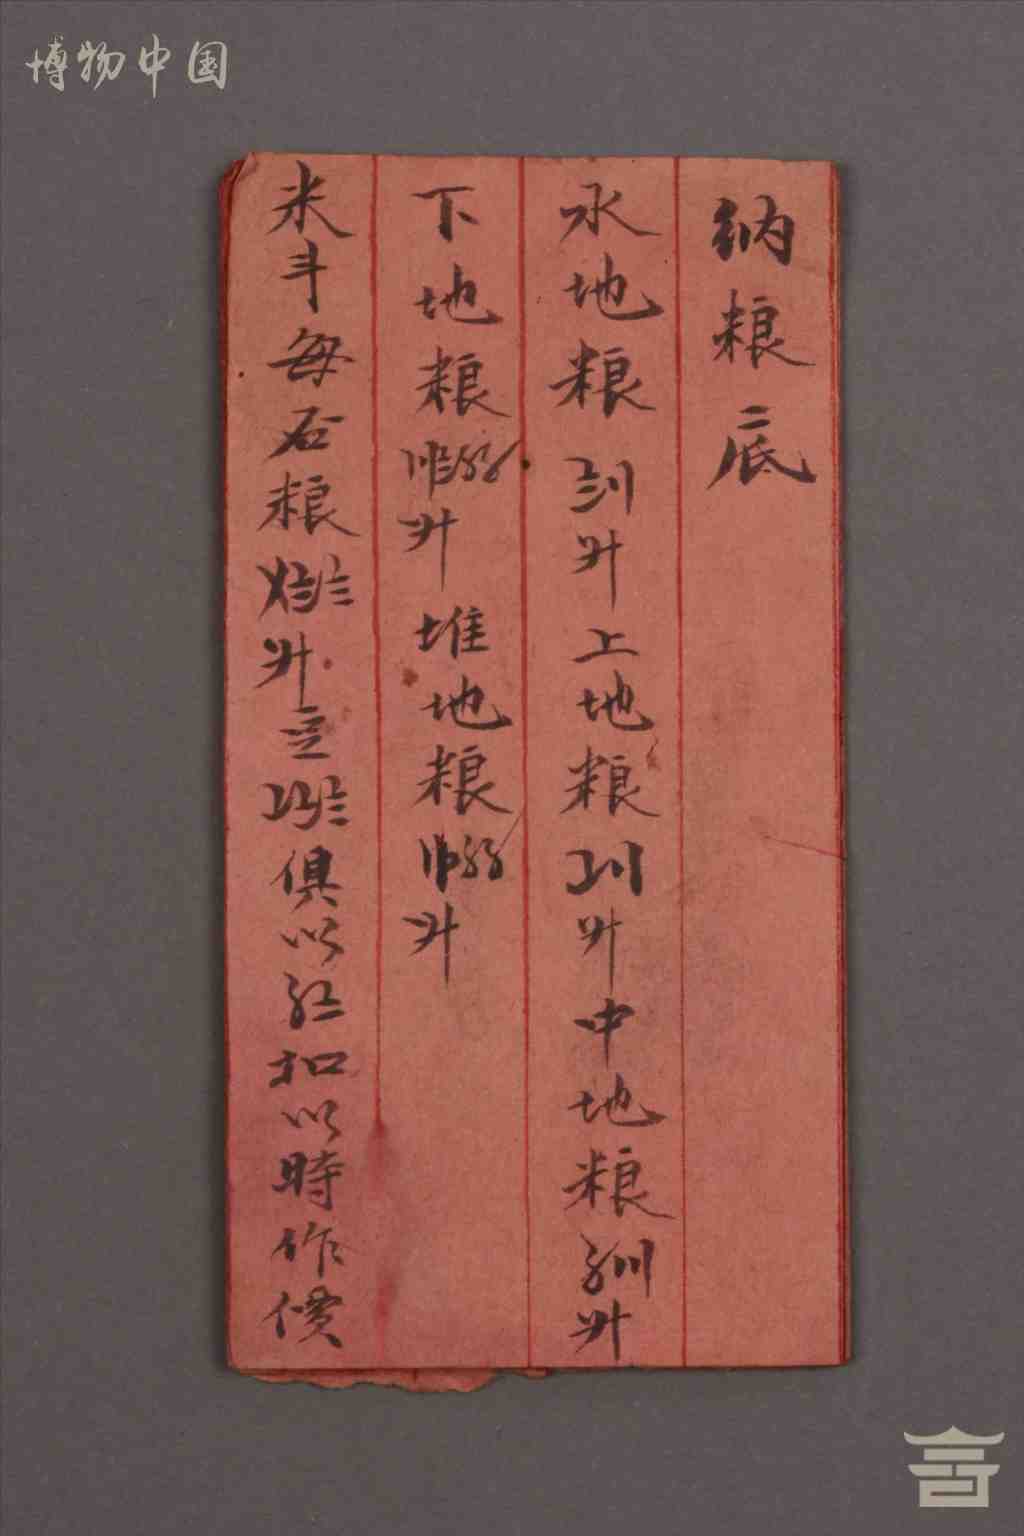 博物中国
纳粮底
水地粮〣〢升上地粮〢升中地粮升
下地粮升堆地粮升
米斗每石粮升立俱以红扣以時作價